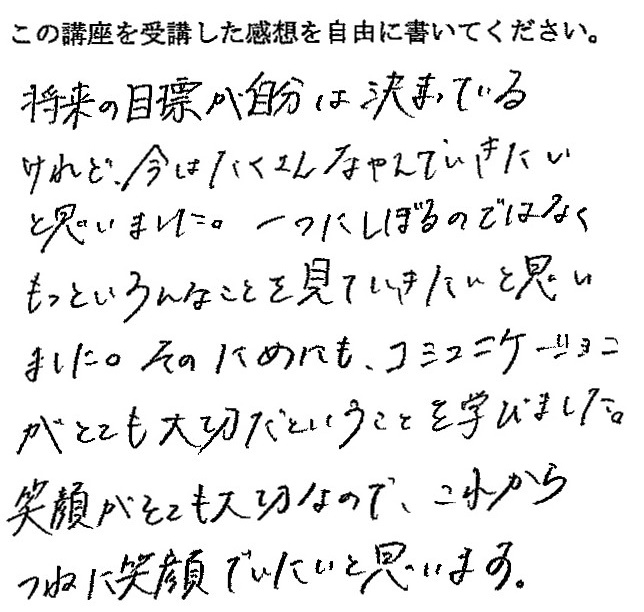 この講座を受講した感想を自由に書いてください。
将来の目標が自分は決まっている
けれど、今はたくさんなやんでいきたい
と思いました。一つにしぼるのではなく
もっといろんなことを見ていきたいと思い
ました。そのためにも、コミュニケーション
がとても大切だということを学びました。
笑顔がとても大切なので、これから
つねに笑顔でいたいと思います。